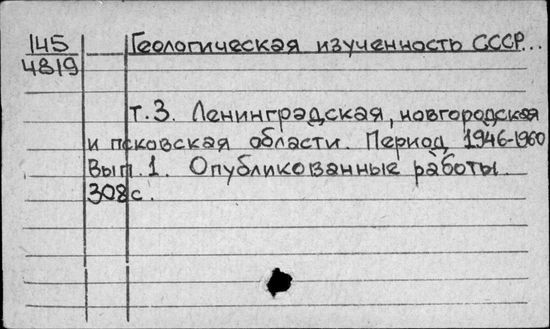 145 Геологическая изученность СССР...
4819
т.3. Ленинградская, новгородская
и псковская области. Период 1946-1960
Вып.1. Опубликованные работы.
308с.